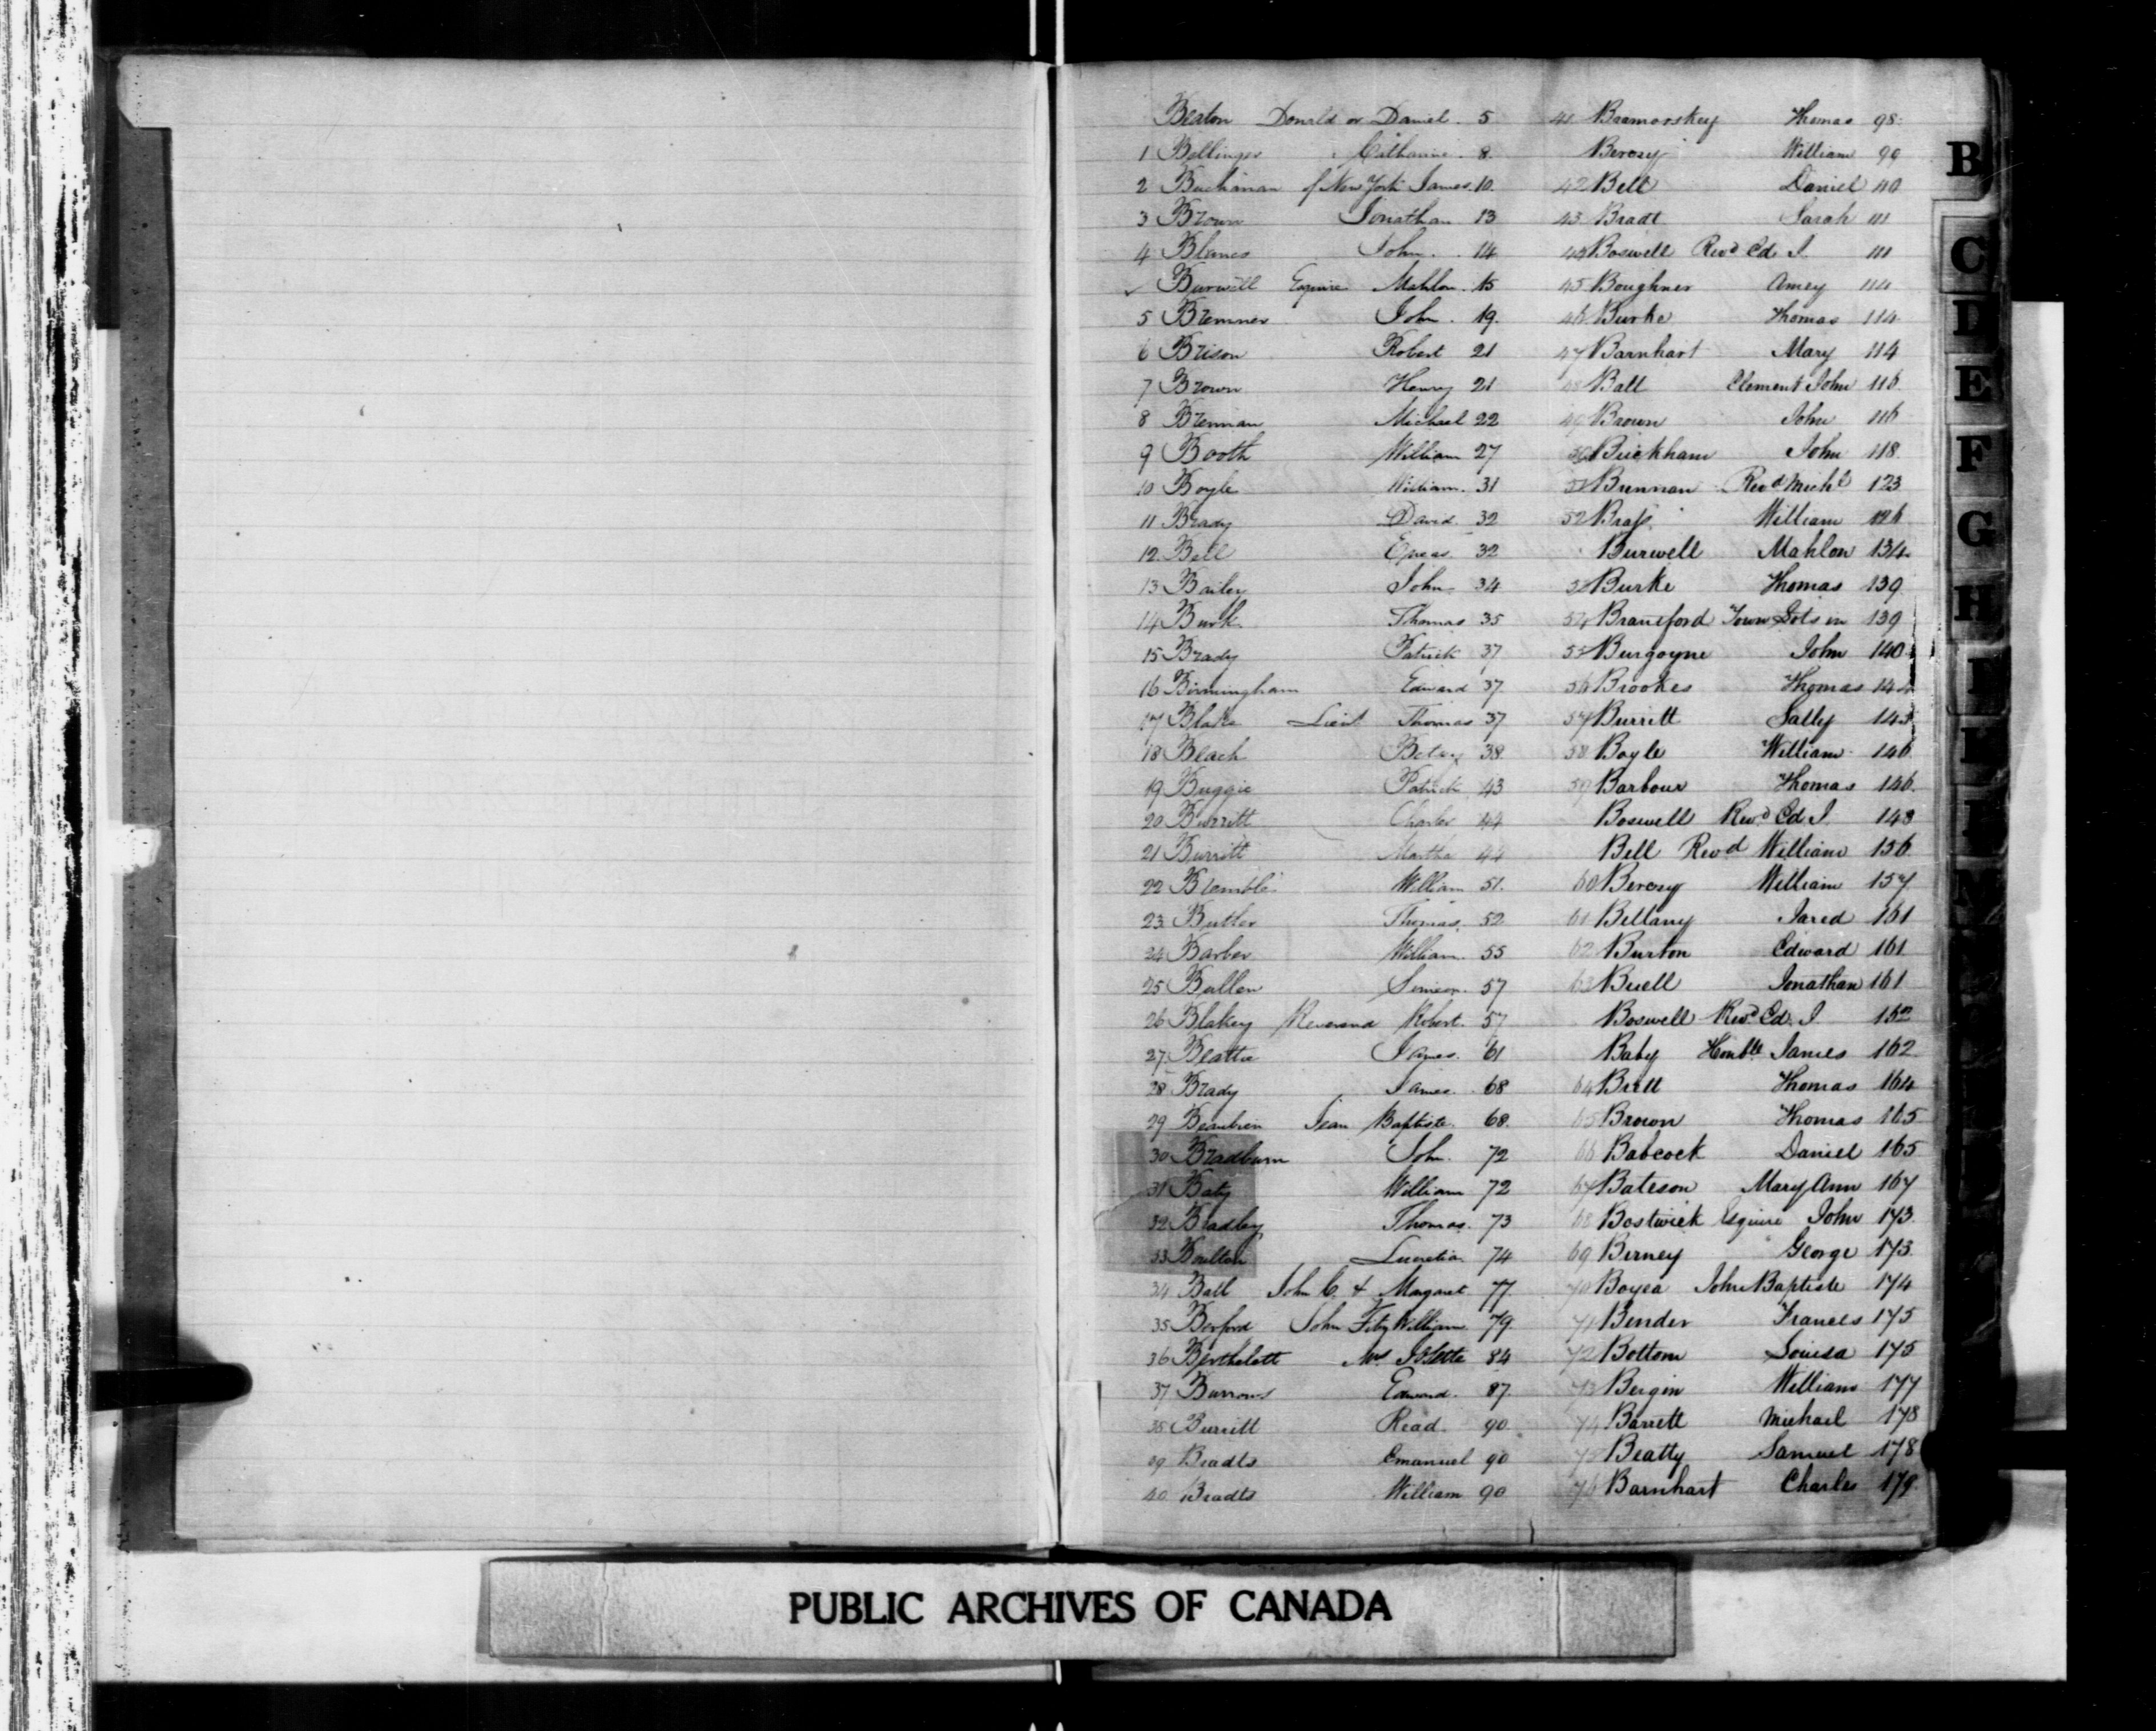 Beaton Donald or Daniel. 5
1 Bellinger Catharine. 8.
2 Buchanan of New York James. 10.
3 Brown Jonathan 13
4 Blanes John. 14
Burwell Esquire Mahlon. 15
5 Bremner John. 19.
6 Brison Robert 21
7 Brown Henry 21
8 Brennan Michael 22
9 Booth William 27
10 Boyle William. 31
11 Brady David. 32
12. Bell 32
13 Bailey John 34
14 Burk Thomas 35
15 Brady Patrick 37
16 Birmingham Edward 37
17 Blake Lieut Thomas 37
18 Beach Betsy 38
19 Buggie Patrick 43
20 Burritt Charles 44
21 Burritt Martha 44
22 Bremble William 51.
23 Butler Thomas. 52
24 Barber William. 55
25 Bullen Simeon. 57
26 Blakey Reverend Robert. 57
27 Beattie James. 61
28 Brady James. 68
29 Beaubien Jean Baptiste. 68.
30 Bradburn John. 72
31 Baty William 72
32 Bradley Thomas. 73
33 Boulton Lucretia. 74
34 Ball John C. & Margaret. 77
35 Berford John Fitz William 79.
36 Berthelott Mrs 84
37 Burrows Edward. 87.
38 Burritt Read. 90
39 Bradts Emanuel 90
40 Bradts William 90
41 Bramorskey Thomas 98.
Berczy William 99
42 Bell Daniel 40
43 Bradt Sarah 111
44 Boswell Revd Ed. J. 111
45 Boughner Amey 114
46 Burke Thomas 114
47 Barnhart Mary 114
48 Ball Clement John 116
49 Brown John 116
50 Bickham John 118
51 Brennan Revd Michl 123
52 Brass William 126
Burwell Mahlon 134
53 Burke Thomas 139
54 Branceford Town Lots in 139
55 Burgoyne John 140
56 Brookes Thomas 144
57 Burritt Sally 145
58 Boyle William 146
59 Barbour Thomas 146.
Boswell Revd Ed J. 148
Bell Revd William 156
60 Berczy William 157
61 Bellany Jared 161
62 Burton Edward 161
63 Buell Jonathan 161
Boswell Revd Ed. J. 162
Baby Honble James 162
64 Brett Thomas 164
65 Brown Thomas 165
66 Babcock Daniel 165
67 Bateson Mary Ann 167
68 Bostwick Esquire John 173
69 Birney George 173
70 Boyea John Baptiste 174
71 Bender Frances 175
72 Bottom Louisa 175
73 Bergin William 177
74 Barrett Michael 178
75 Beatty Samuel 178
76 Barnhart Charles 179
B
C
D
E
F
G
H
I
PUBLIC ARCHIVES OF CANADA